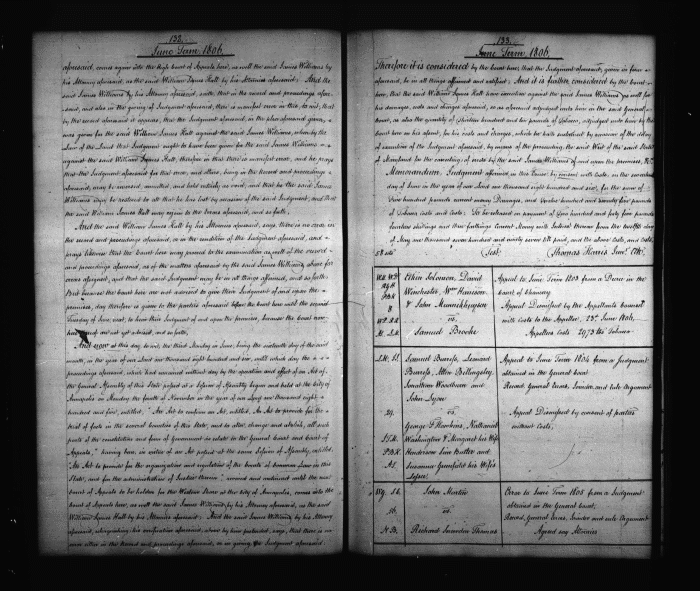 132.
June Term, 1806
aforesaid, comes again into the high Court of Appeals here, as well the said James Williams by
his Attorney aforesaid, as the said William James Hall by his Attornies aforesaid: And the
said James Williams by his Attorney aforesaid, saith, that in the record and proceedings afore-
said, and also in the giving of Judgment aforesaid, there is manifest error in this, to wit, that
by the record aforesaid it appears, that the Judgment aforesaid, in the plea aforesaid given,
was given for the said William James Hall against the said James Williams, when by the
Law of the Land that Judgment ought to have been given for the said James Williams
against the said William James Hall, therefore in this there is manifest error, and he prays
that the Judgment aforesaid for that error, and others, being in the Record and proceedings
aforesaid, may be reversed, annulled, and held entirely as void, and that he the said James
Williams may be restored to all that he has lost by occasion of the said Judgment, and that
the said William James Hall may rejoin to the Errors aforesaid, and so forth;
And the said William James Hall by his Attornies aforesaid, says there is no error in
the record and proceedings aforesaid, or in the rendition of the Judgment aforesaid, and
prays likewise that the Court here may proceed to the examination as well of the record
and proceedings aforesaid, as of the matters aforesaid by the said James Williams, above for
errors assigned, and that the said Judgment may be in all things affirmed, and so forth;
But because the Court here are not advised to give their Judgment of and upon the
premises, day therefore is given to the parties aforesaid before the Court here until the second
Tuesday of June next, to hear their Judgment of and upon the premises, because the Court now
here thereof are not yet advised, and so forth,
And now at this day to wit, the third Monday in June, being the sixteenth day of the said
month, in the year of our Lord one thousand eight hundred and six, until which day the
proceedings aforesaid, which had were continued day by the operation and effect of an Act of
the General Assembly of this State passed at a Session of Assembly begun and held at the City of
Annapolis on Monday the fourth of November in the year of our Lord one thousand eight
hundred and five, entitled, "An Act to confirm an Act, entitled, An Act to provide for the
trial of facts in the several Counties of this State, and to alter, change and abolish, all such
parts of the constitution and form of Government as relate to the General Court and Court of
Appeals," having been, in virtue of an Act passed at the same Session of Assembly, entitled
"An Act to provide for the organization and regulation of the Courts of Common Law in this
State, and for the administration of Justice therein" moved and continued until the next
Court of Appeals to be holden for the Western Shore at the City of Annapolis, comes into the
Court of Appeals here, as well the said James Williams, by his Attorney aforesaid, as the said
William James Hall by his Attornies aforesaid: And the said James Williams, by his Attorney
aforesaid, relinquishing his ratification aforesaid, above by him pretended, says that there is no
error either in the Record and proceedings aforesaid, or in giving the Judgment aforesaid.
133.
June Term, 1806
Therefore it is considered by the Court here, that the Judgment aforesaid, given in form
aforesaid, be in all things affirmed and ratified; And it is further considered by the Court
here, that the said William James Hall have execution against the said James Williams as well for
his damages, costs and charges aforesaid, so as aforesaid adjudged unto him in the said General
Court, as also the quantity of thirteen hundred and ten pounds of Tobacco, adjudged unto him by the
Court here on his assent, for his costs and charges, which he hath sustained by occasion of the delay
of execution of the Judgment aforesaid, by means of the prosecuting, the said Writ of the said State
of Maryland for the correcting of errors by the said James Williams of and upon the premises, &c.
Memorandum, Judgment affirmed in this Cause by consent with Costs, on the seventeenth
day of June in the year of our Lord one thousand eight hundred and six, for the sum of
Two hundred pounds current money Damages, and Twelve hundred and seventy five pounds
of Tobacco costs and costs; To be released on payment of One hundred and forty four pounds
fourteen shillings and three farthings Current Money with Interest thereon from the twelfth day
of May one thousand seven hundred and ninety seven till paid, and the above Costs, and Costs.
Test. Thomas Harris Junr. Clk.
Elkin Solomon, David
Winchester, Wm. Raisson
& John Munnikhuysen
vs.
Samuel Brooke
Appeal to June Term 1803 from a Decree in the
Court of Chancery
Appeal Dismissed by the Appellants Counsel
with Costs to the Appellee, 23d. June 1806.
Appellees Costs 2973 lbs Tobacco
Samuel Burress, Leonard
Burress, Allin Billingsley,
Jonathan Woodburn and
John Lyon
vs.
George F. Hawkins, Nathaniel
Washington & Margaret his Wife
Henderson Sim Butler and
Susanna Greenfield his Wife's
Lessee
Appeal to June Term 1804 from a Judgment
obtained in the General Court
Record, General Errors, Joinder, and rule Argument
Appeal Dismissed by consent of parties
without Costs;
John Martin
vs.
Richard Snowden Thomas
Error to June Term 1805 from a Judgment
obtained in the General Court,
Record, General Errors, Joinder and rule Argument
Agreed say Attornies